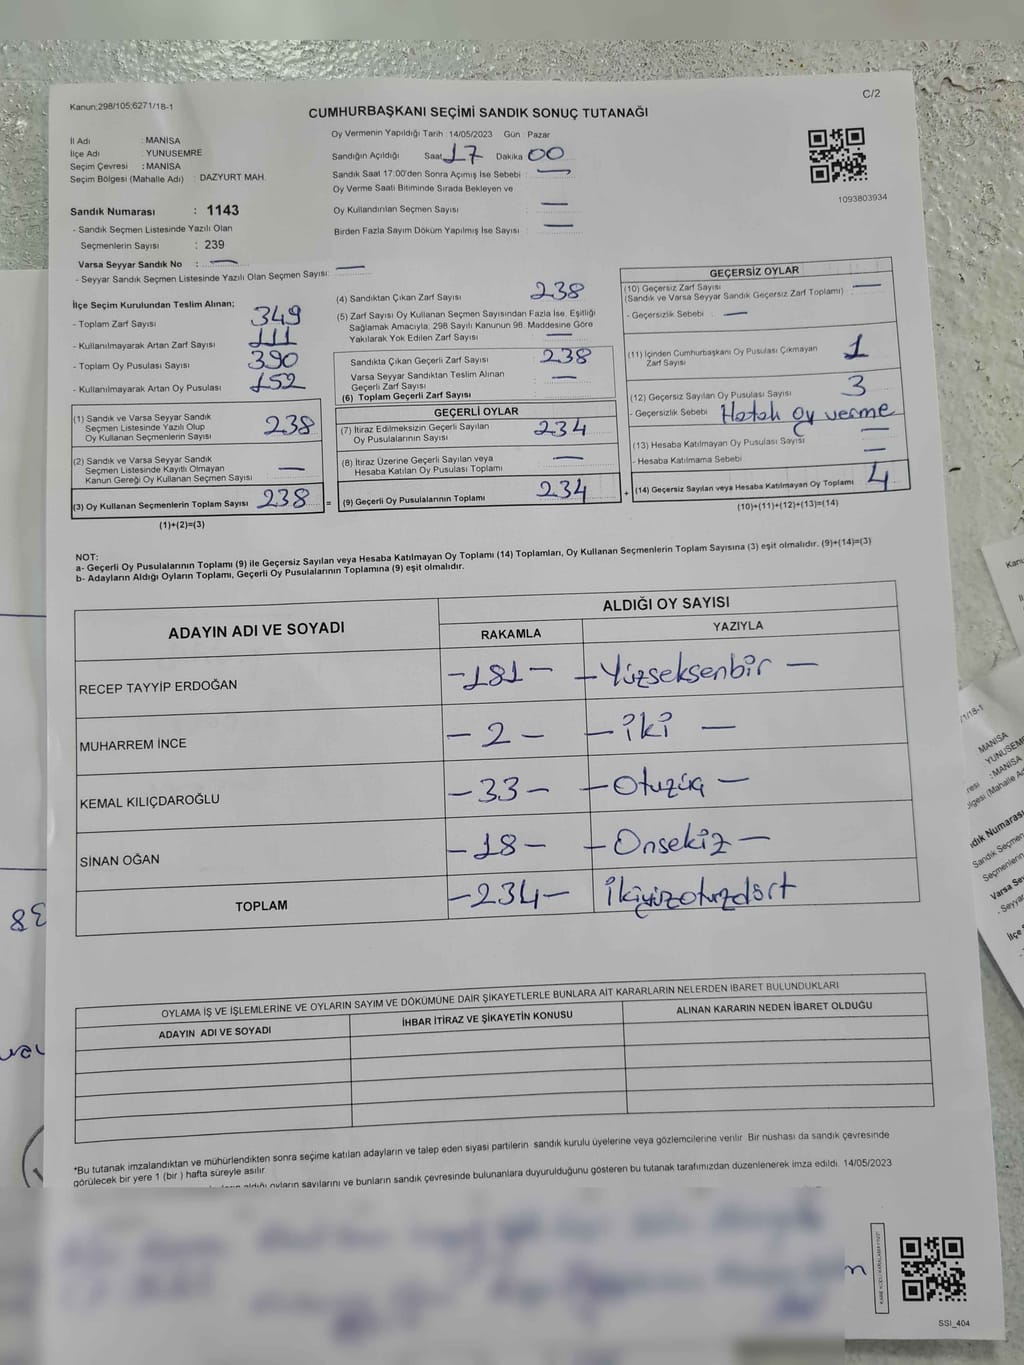 Kanun;298/105;6271/18-1
C/2
CUMHURBAŞKANI SEÇİMİ SANDIK SONUÇ TUTANAĞI
İl Adı : MANİSA
İlçe Adı : YUNUSEMRE
Seçim Çevresi : MANİSA
Seçim Bölgesi (Mahalle Adı) : DAZYURT MAH.
Sandık Numarası : 1143
- Sandık Seçmen Listesinde Yazılı Olan
Seçmenlerin Sayısı : 239
Varsa Seyyar Sandık No : —
- Seyyar Sandık Seçmen Listesinde Yazılı Olan Seçmen Sayısı: —
Oy Vermenin Yapıldığı Tarih : 14/05/2023 Gün : Pazar
Sandığın Açıldığı Saat 17 Dakika 00
Sandık Saat 17:00'den Sonra Açımış İse Sebebi : —
Oy Verme Saati Bitiminde Sırada Bekleyen ve
Oy Kullandırılan Seçmen Sayısı : —
Birden Fazla Sayım Döküm Yapılmış İse Sayısı : —
1093803934
İlçe Seçim Kurulundan Teslim Alınan;
- Toplam Zarf Sayısı : 349
- Kullanılmayarak Artan Zarf Sayısı : 111
- Toplam Oy Pusulası Sayısı : 390
- Kullanılmayarak Artan Oy Pusulası : 152
(1) Sandık ve Varsa Seyyar Sandık
Seçmen Listesinde Yazılı Olup
Oy Kullanan Seçmenlerin Sayısı : 238
(2) Sandık ve Varsa Seyyar Sandık
Seçmen Listesinde Kayıtlı Olmayan
Kanun Gereği Oy Kullanan Seçmen Sayısı : —
(3) Oy Kullanan Seçmenlerin Toplam Sayısı : 238
(1)+(2)=(3)
=
(4) Sandıktan Çıkan Zarf Sayısı : 238
(5) Zarf Sayısı Oy Kullanan Seçmen Sayısından Fazla İse, Eşitliği
Sağlamak Amacıyla; 298 Sayılı Kanunun 98. Maddesine Göre
Yakılarak Yok Edilen Zarf Sayısı : —
Sandıkta Çıkan Geçerli Zarf Sayısı : 238
Varsa Seyyar Sandıktan Teslim Alınan
Geçerli Zarf Sayısı : —
(6) Toplam Geçerli Zarf Sayısı :
GEÇERLİ OYLAR
(7) İtiraz Edilmeksizin Geçerli Sayılan
Oy Pusulalarının Sayısı : 234
(8) İtiraz Üzerine Geçerli Sayılan veya
Hesaba Katılan Oy Pusulası Toplamı : —
(9) Geçerli Oy Pusulalarının Toplamı : 234
+
GEÇERSİZ OYLAR
(10) Geçersiz Zarf Sayısı
(Sandık ve Varsa Seyyar Sandık Geçersiz Zarf Toplamı) : —
- Geçersizlik Sebebi : —
(11) İçinden Cumhurbaşkanı Oy Pusulası Çıkmayan
Zarf Sayısı : 1
(12) Geçersiz Sayılan Oy Pusulası Sayısı : 3
- Geçersizlik Sebebi : Hatalı oy verme
(13) Hesaba Katılmayan Oy Pusulası Sayısı : —
- Hesaba Katılmama Sebebi : —
(14) Geçersiz Sayılan veya Hesaba Katılmayan Oy Toplamı : 4
(10)+(11)+(12)+(13)=(14)
NOT:
a- Geçerli Oy Pusulalarının Toplamı (9) ile Geçersiz Sayılan veya Hesaba Katılmayan Oy Toplamı (14) Toplamları, Oy Kullanan Seçmenlerin Toplam Sayısına (3) eşit olmalıdır. (9)+(14)=(3)
b- Adayların Aldığı Oyların Toplamı, Geçerli Oy Pusulalarının Toplamına (9) eşit olmalıdır.
ADAYIN ADI VE SOYADI
ALDIĞI OY SAYISI
RAKAMLA YAZIYLA
RECEP TAYYİP ERDOĞAN -181- -Yüzseksenbir-
MUHARREM İNCE -2- -iki-
KEMAL KILIÇDAROĞLU -33- -Otuzüç-
SİNAN OĞAN -18- -Onsekiz-
TOPLAM -234- İkiyüzotuzdört
OYLAMA İŞ VE İŞLEMLERİNE VE OYLARIN SAYIM VE DÖKÜMÜNE DAİR ŞİKAYETLERLE BUNLARA AİT KARARLARIN NELERDEN İBARET BULUNDUKLARI
ADAYIN ADI VE SOYADI İHBAR İTİRAZ VE ŞİKAYETİN KONUSU ALINAN KARARIN NEDEN İBARET OLDUĞU
*Bu tutanak imzalandıktan ve mühürlendikten sonra seçime katılan adayların ve talep eden siyasi partilerin sandık kurulu üyelerine veya gözlemcilerine verilir. Bir nüshası da sandık çevresinde
görülecek bir yere 1 (bir) hafta süreyle asılır.
aldığı oyların sayılarını ve bunların sandık çevresinde bulunanlara duyurulduğunu gösteren bu tutanak tarafımızdan düzenlenerek imza edildi. 14/05/2023
SSI_404
38
/18-1
MANİSA
YUNUSEM
: MANİSA
dık Numarası
Sandık Seçmen
Seçmenlerin
Varsa Se
- Seyyar
İlçe